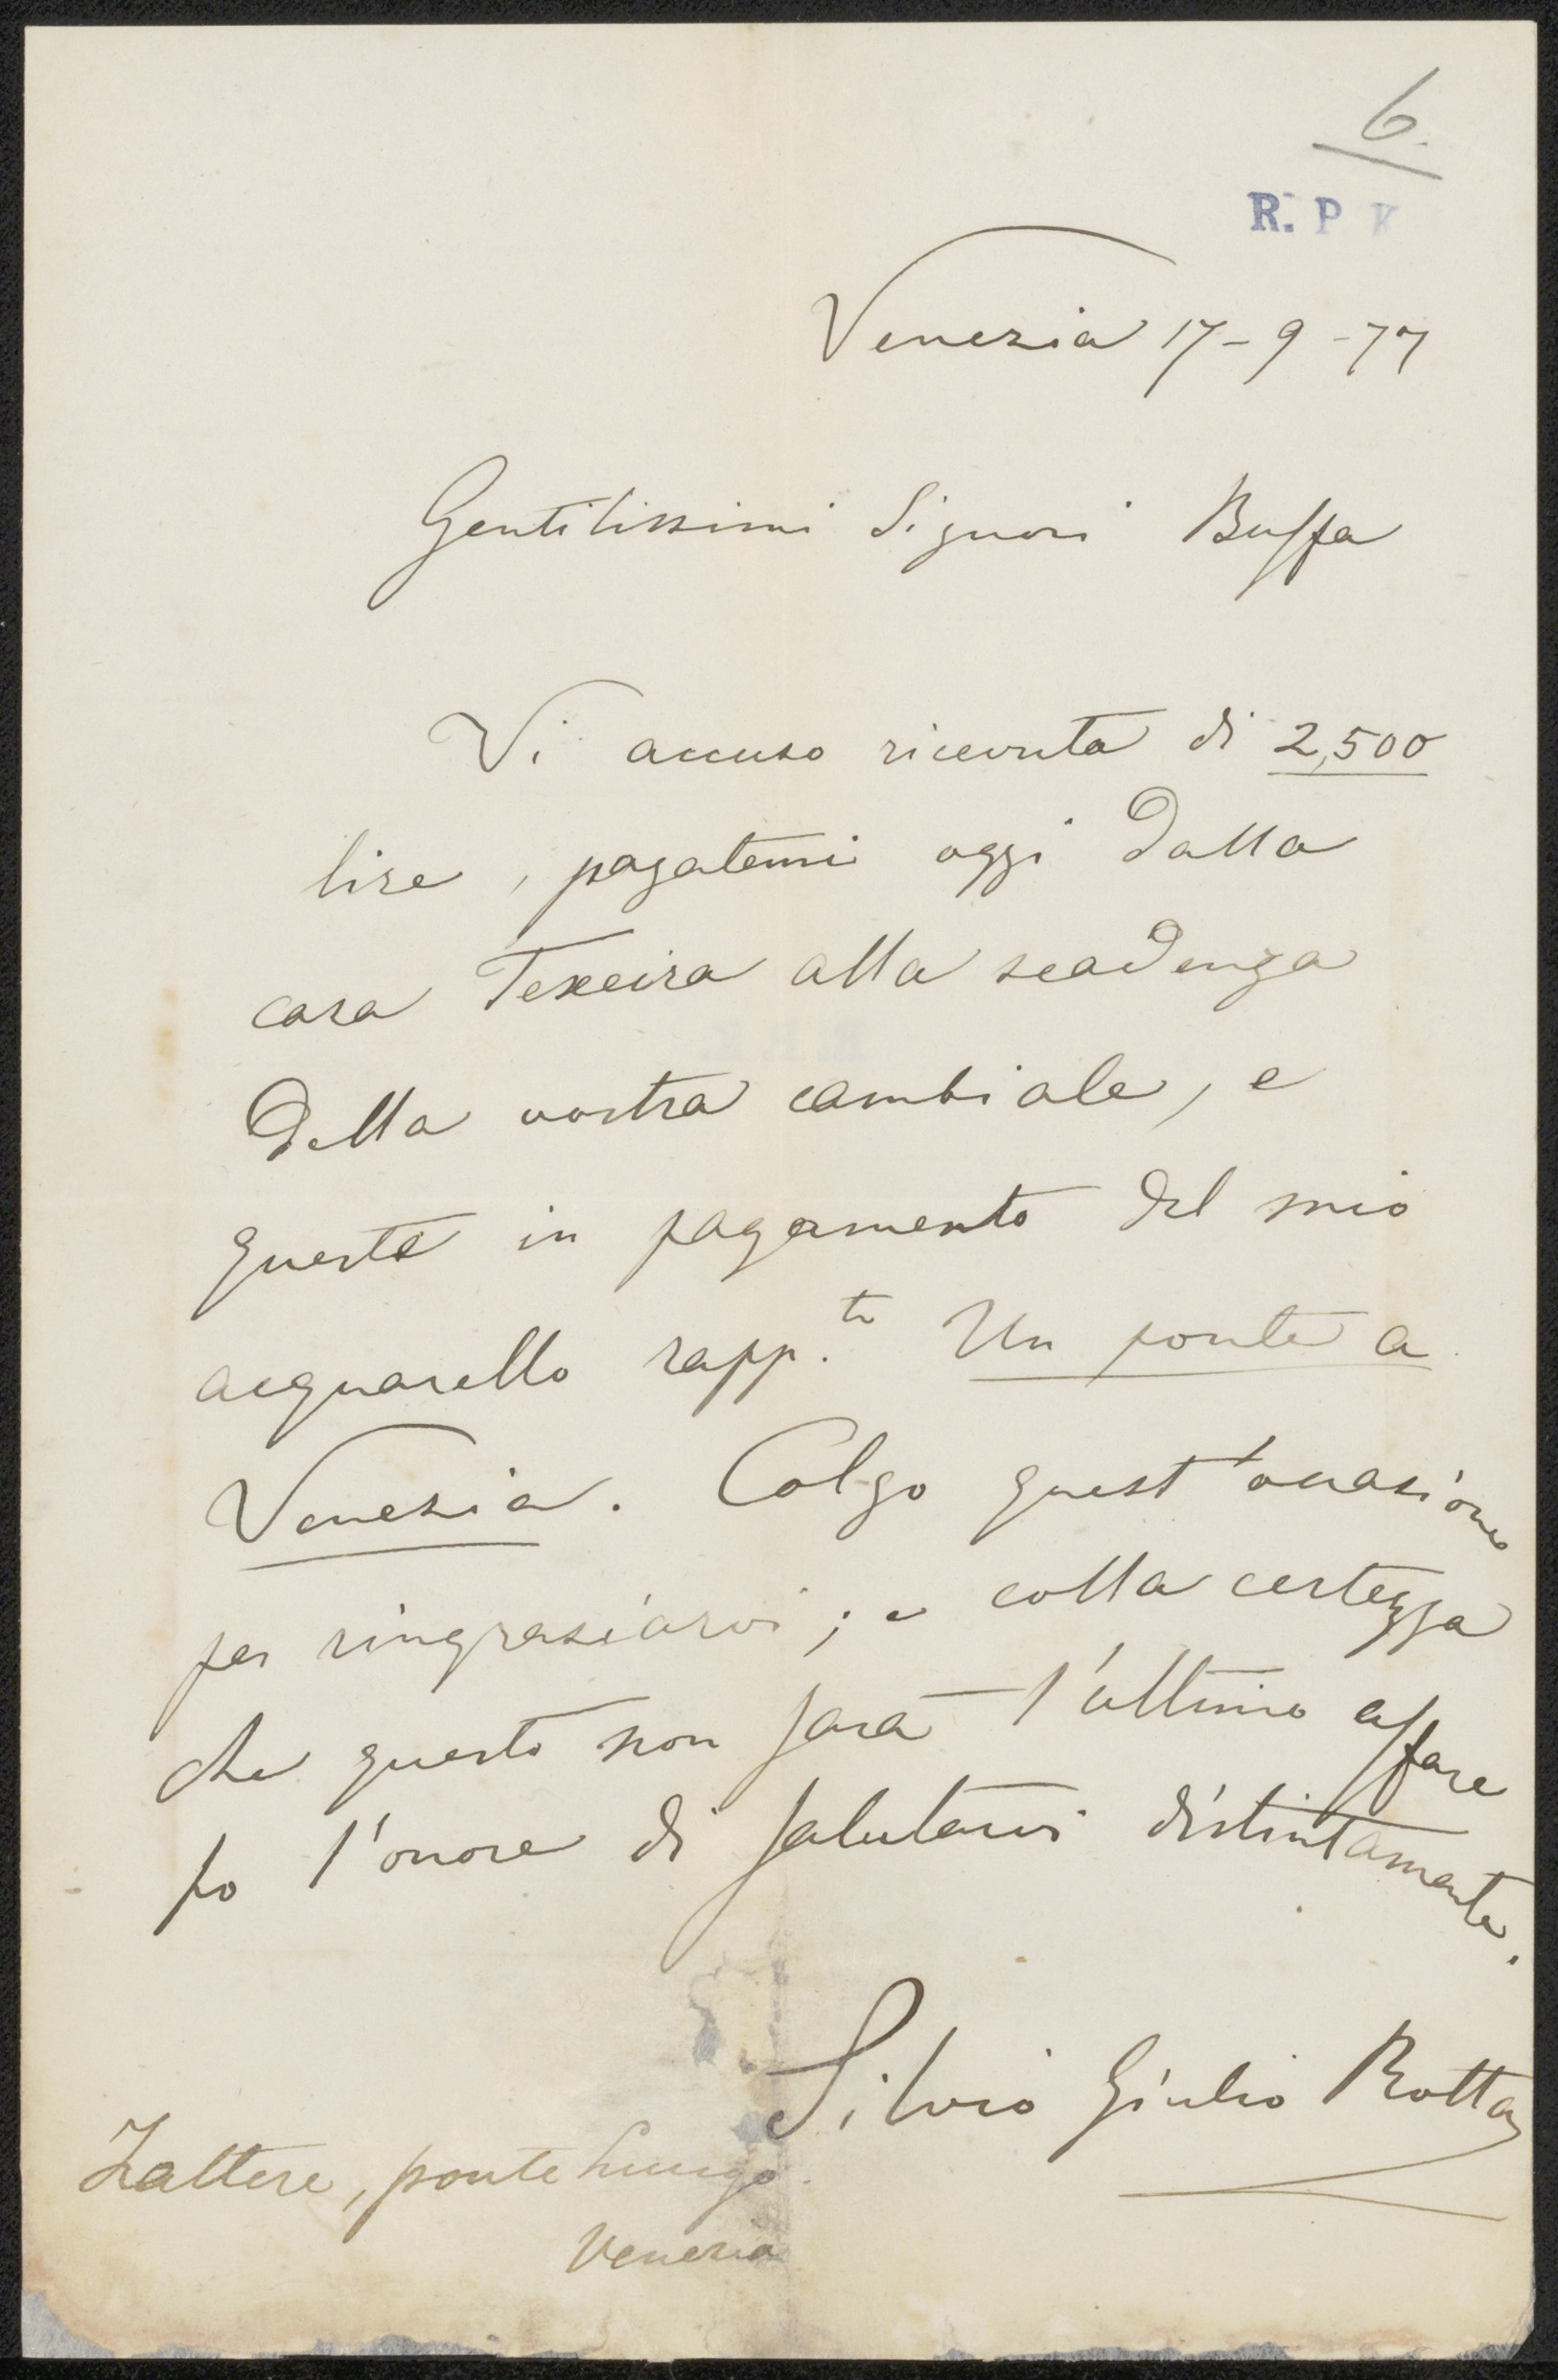 6.
R. P K
Venezia 17-9-77
Gentilissimi Signori Buffa
Vi accuso ricevuta di 2,500
lire, pagatemi oggi dalla
casa Texeira alla scadenza
della vostra cambiale, e
queste in pagamento del mio
acquarello rapp.te Un ponte a
Venezia. Colgo quest'occasione
per ringraziarvi; e colla certezza
che questo non sarà l'ultimo affare
fo l'onore di salutarvi distintamente.
Silvio Giulio Rotta
Zattere, ponte Lungo.
Venezia